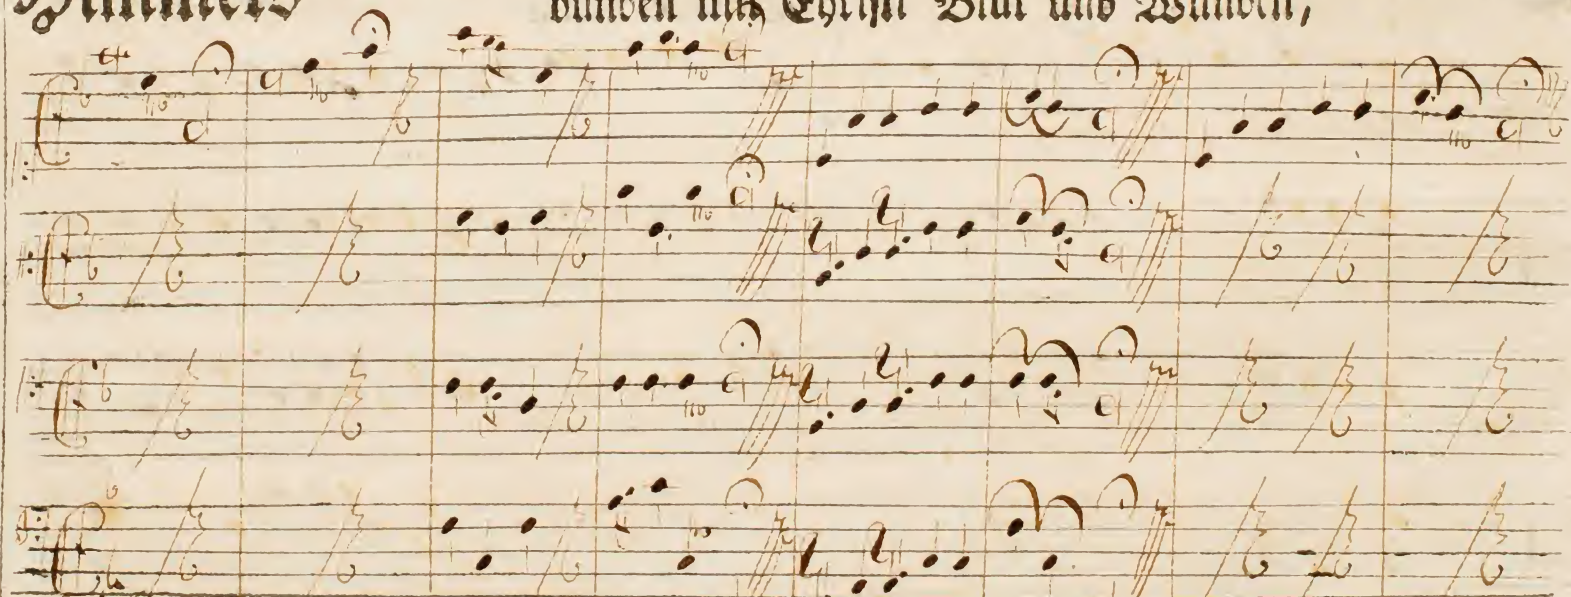 Himmels
bunden mit Christi Blut und Wunden,